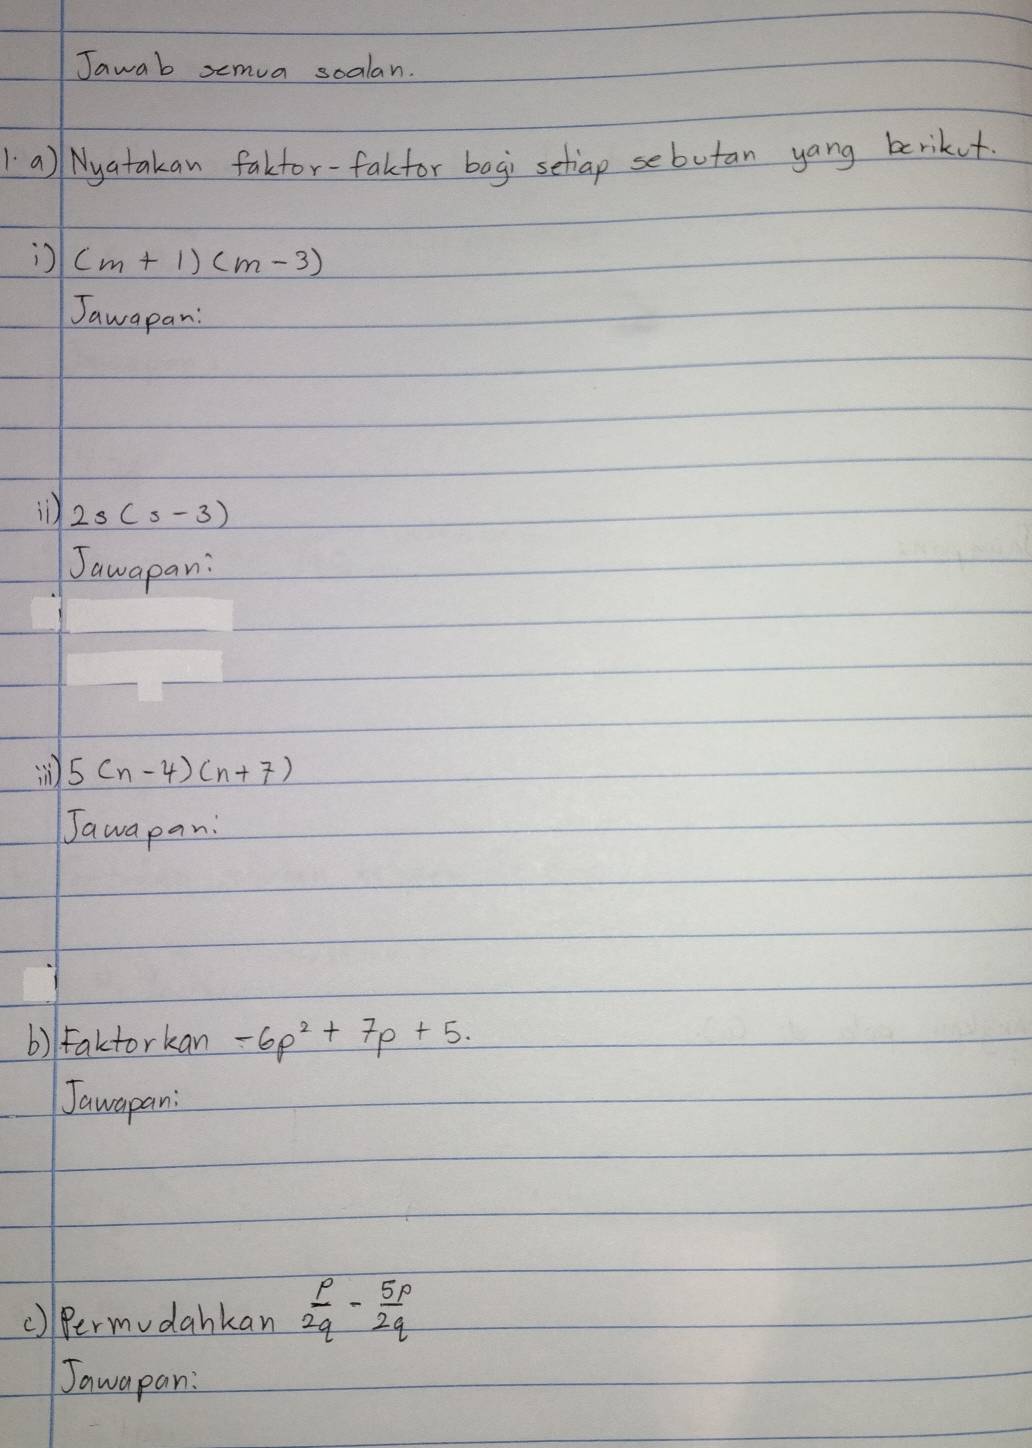 Jawab semua soalan.
1. a) Nyatakan faktor-faktor bagi setiap sebutan yang berikut.
i) (m + 1) (m - 3)
Jawapan:
ii) 2s (s - 3)
Jawapan:
iii) 5 (n - 4) (n + 7)
Jawapan:
b) Faktorkan -6p² + 7p + 5.
Jawapan:
c) Permudahkan p/2q - 5p/2q
Jawapan: